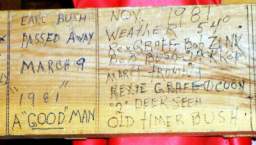 EARL BUSH
PASSED AWAY
MARCH 9
"1981"
A "GOOD" MAN
NOV. 1981
WEATHER 540.
REX GRAFF BOB ZINK
BUSH PARKER
REXIE GRAFF COON
"2" DEER SEEN
OLD TIMER BUSH